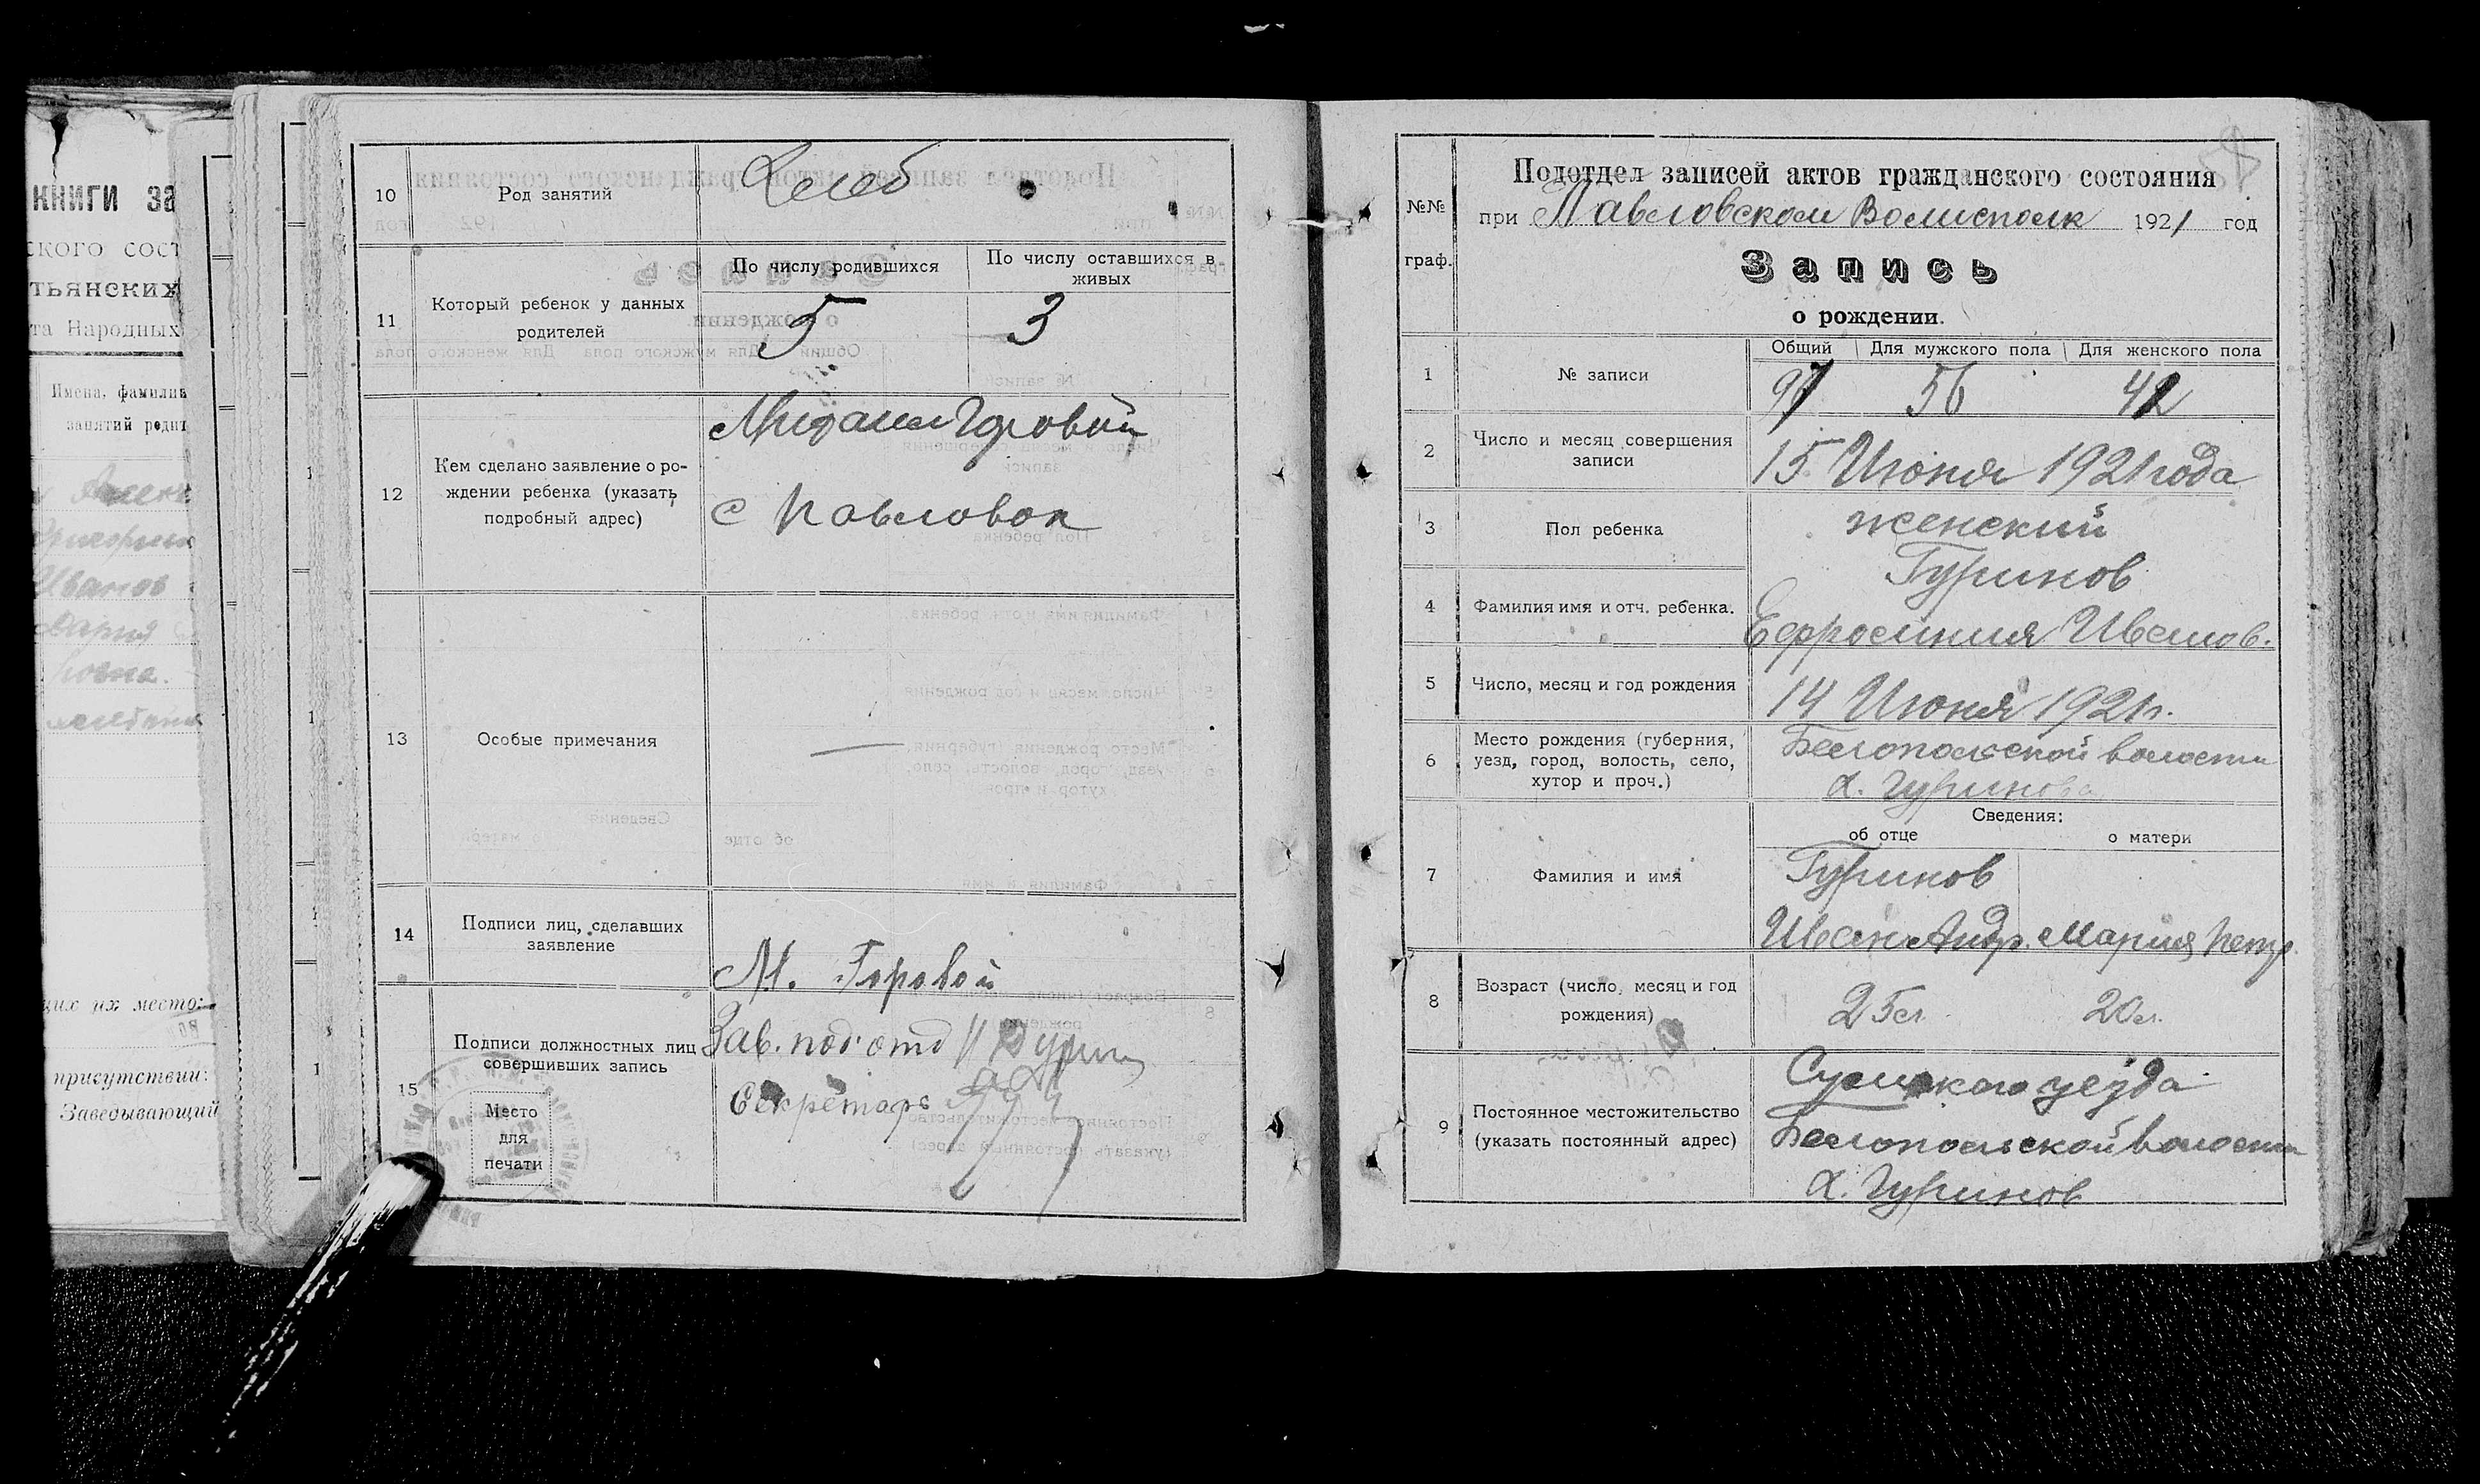 КНИГИ ЗА
ского сост
тьянских
та Народных
Имена, фамилии
занятий родит
Иванов
Мария
ших их место:
присутствии:
Заведывающий
10 Род занятий Хлеб
11 Который ребенок у данных
родителей
По числу родившихся По числу оставшихся в
живых
5 3
12 Кем сделано заявление о ро-
ждении ребенка (указать
подробный адрес)
Михаил Горовой
с Павловок
13 Особые примечания —
14 Подписи лиц, сделавших
заявление
М. Горовой
15 Подписи должностных лиц
совершивших запись
Зав. под.отд
Секретарь
Место
для
печати
№№
граф.
Подотдел записей актов гражданского состояния
при Павловском Волисполк 1921 год
Запись
о рождении.
Общий Для мужского пола Для женского пола
1 № записи 97 56 42
2 Число и месяц совершения
записи
15 Июня 1921 года
3 Пол ребенка женский
Гуринов
4 Фамилия имя и отч. ребенка.
Ефросиния Иванов.
5 Число, месяц и год рождения 14 Июня 1921 г.
6 Место рождения (губерния,
уезд, город, волость, село,
хутор и проч.)
Белопольской волости
х. Гуринова
Сведения:
об отце о матери
7 Фамилия и имя Гуринов
Иван Андр. Мария Петр.
8 Возраст (число, месяц и год
рождения)
25 л. 20 л.
9 Постоянное местожительство
(указать постоянный адрес)
Сумского уезда
Белопольской волости
х. Гуринов